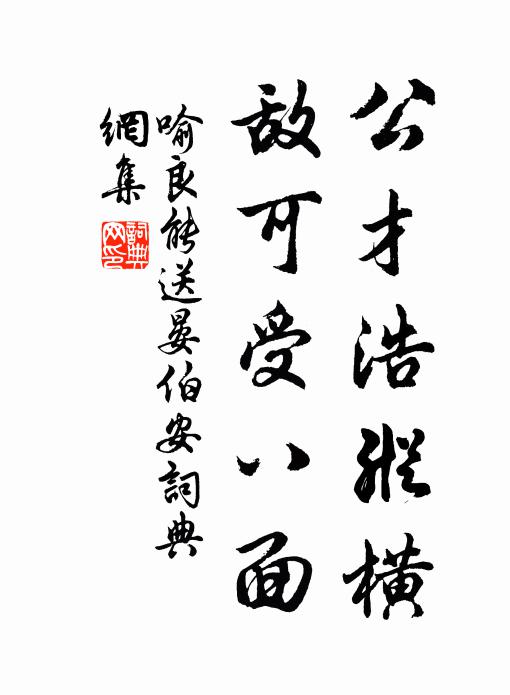 公才浩縱橫
敌可受八面
喻良能送晏伯安詞典
網集
詞典
网印